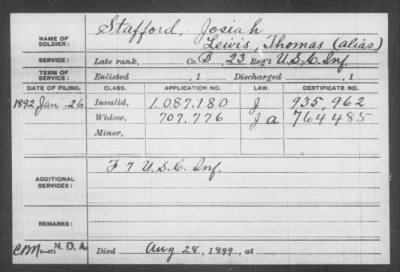 NAME OF SOLDIER: Stafford, Josiah
Lewis, Thomas (alias)
SERVICE: Late rank, Co. D, 23 Reg't U.S.C. Inf.
TERM OF SERVICE: Enlisted , 1 Discharged , 1
DATE OF FILING. CLASS. APPLICATION NO. LAW. CERTIFICATE NO.
1892 Jan. 26 Invalid, 1.087.180 J 935,962
Widow, 707,776 J a 764485
Minor,
ADDITIONAL SERVICES: F 7 U.S.C. Inf.
REMARKS:
N. D. A.
Died Aug 28, 1899, at